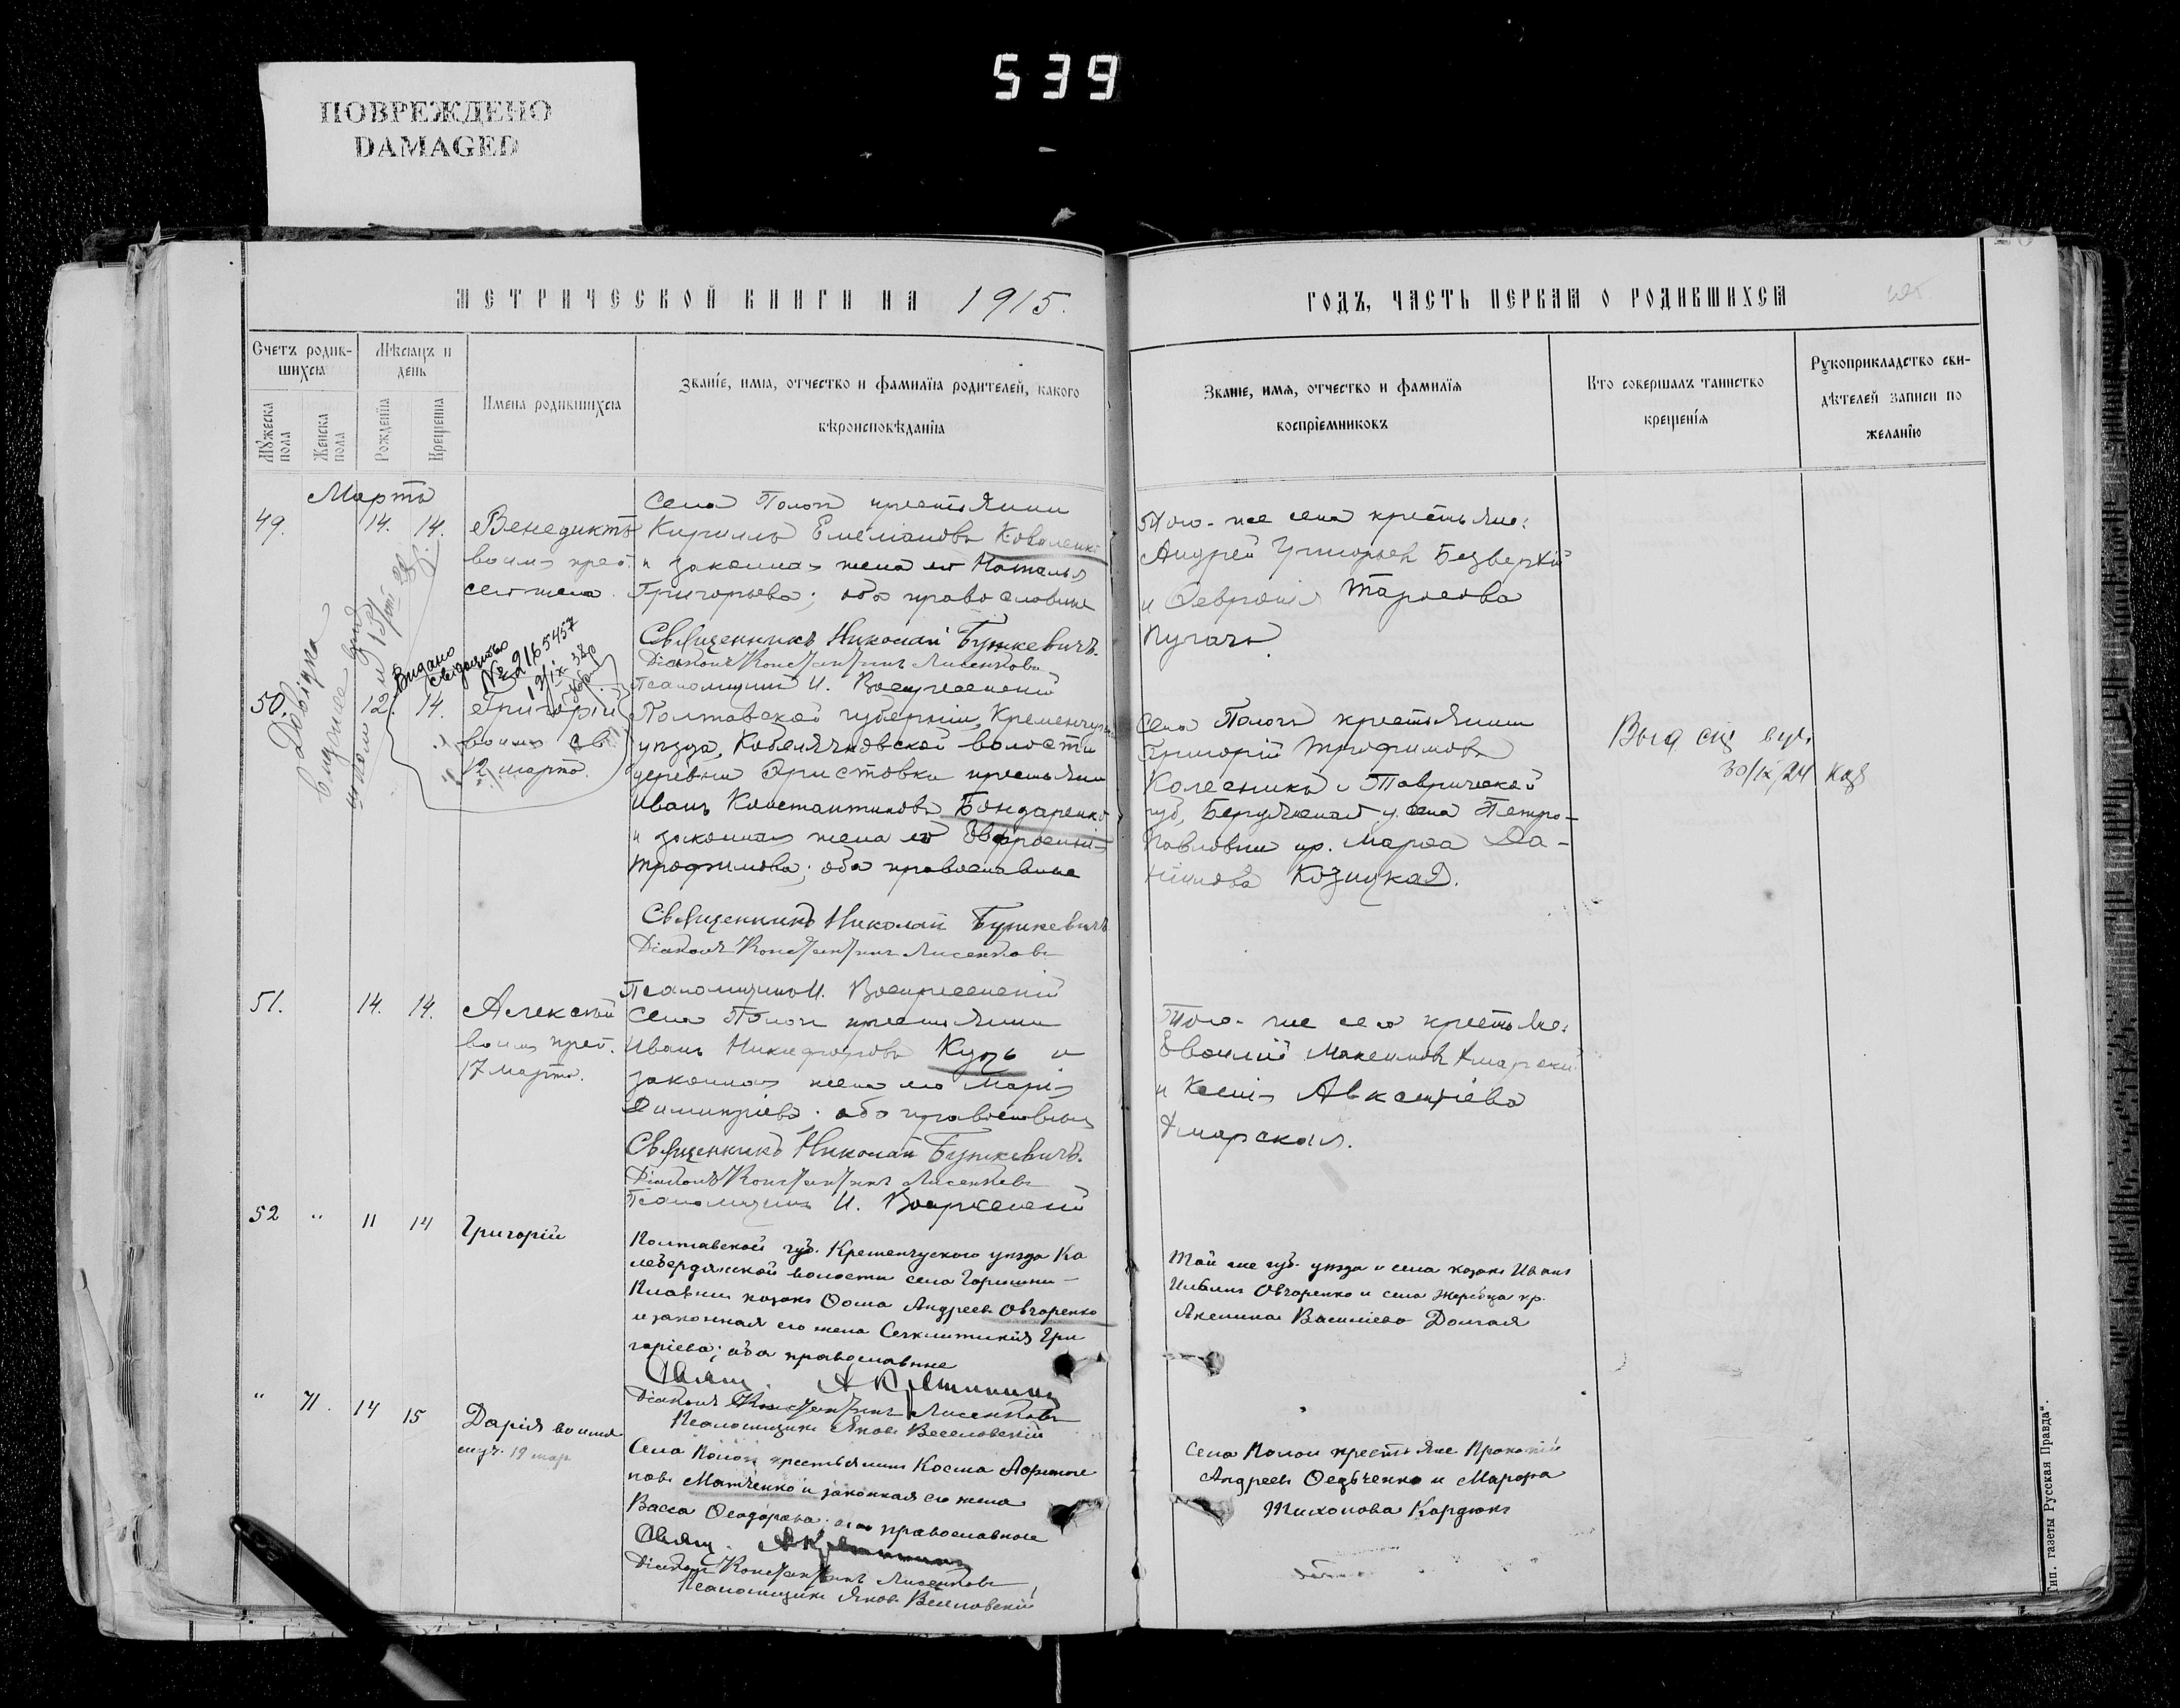 539
ПОВРЕЖДЕНО
DAMAGED
МЕТРИЧЕСКОЙ КНИГИ НА 1915.
ГОДЪ, ЧАСТЬ ПЕРВАЯ О РОДИВШИХСЯ
Счетъ родив-
шихся
Мѣсяцъ и
день
Мужеска
пола
Женска
пола
Рожденія
Крещенія
Имена родившихся
Званіе, имя, отчество и фамилія родителей, какого
вѣроисповѣданія
Званіе, имя, отчество и фамилія
воспріемниковъ
Кто совершалъ таинство
крещенія
Рукоприкладство сви-
дѣтелей записи по
желанію
Мартъ
49. 14. 14.
Венедиктъ
Села Пологи крестьянин
Кириллъ Емеліановъ Коваленко
и законная жена его Наталья
Григорьева; оба православные
Священникъ Николай Бужкевичъ.
Діаконъ Константинъ Лисенковъ
Псаломщикъ И. Воскресенскій
Того-же села крестьяне:
Андрей Григорьев Безверхій
и Февронія Тарасова
Пугачъ.
Видано
свідоцтво
№ 2165457
Довідка
видана
50. 12. 14.
Григорій
12 марта.
Полтавской губерніи, Кременчуг.
уѣзда, Кобелячковской волости
деревни Фристовки крестьянин
Иванъ Константиновъ Бондаренко
и законная жена его Евфросинія
Трофимова; оба православные
Священникъ Николай Бужкевичъ
Діаконъ Константинъ Лисенковъ
Псаломщикъ И. Воскресенскій
Села Пологъ крестьянин
Григорій Трофимовъ
Колесникъ и Таврической
губ, Бердянскаго у. села Петро-
Павловки кр. Марѳа Да-
ніилова Козицкая.
30/IX 24
51. 14. 14.
Алексѣй
17 марта.
Села Пологи крестьянин
Иванъ Никифоровъ Кузь и
законная жена его Марія
Димитріева. оба православные
Священникъ Николай Бужкевичъ.
Діаконъ Константинъ Лисенковъ
Псаломщикъ И. Воскресенскій
Того-же села крестьяне:
Максимовъ
и Ксенія Авксентіева
52 " 11 14
Григорій
Полтавской губ. Кременчугскаго уѣзда Ке
лебердянской волости села Горишни-
Плавни козакъ Ѳома Андреевъ Овчаренко
и законная его жена Секлитикія Гри
горіева; оба православные
Свящ.
Діаконъ Константинъ Лисенковъ
Псаломщикъ Яковъ Веселовскій
Той же губ. уѣзда и села козакъ Иванъ
Ильинъ Овчаренко и села Жеребца кр.
Акилина Василіева Долгая
" 71. 14 15
Дарія во имя
муч. 19 мар
Села Пологъ крестьянинъ Косма
Матченко и законная его жена
Васса Ѳеодорова. оба православные
Свящ.
Діаконъ Константинъ Лисенковъ
Псаломщикъ Яковъ Веселовскій
Села Пологи крестьяне Прокопій
Андреевъ Ѳедченко и Марѳа
Тихонова Кардюкъ
Тип. газеты Русская Правда".